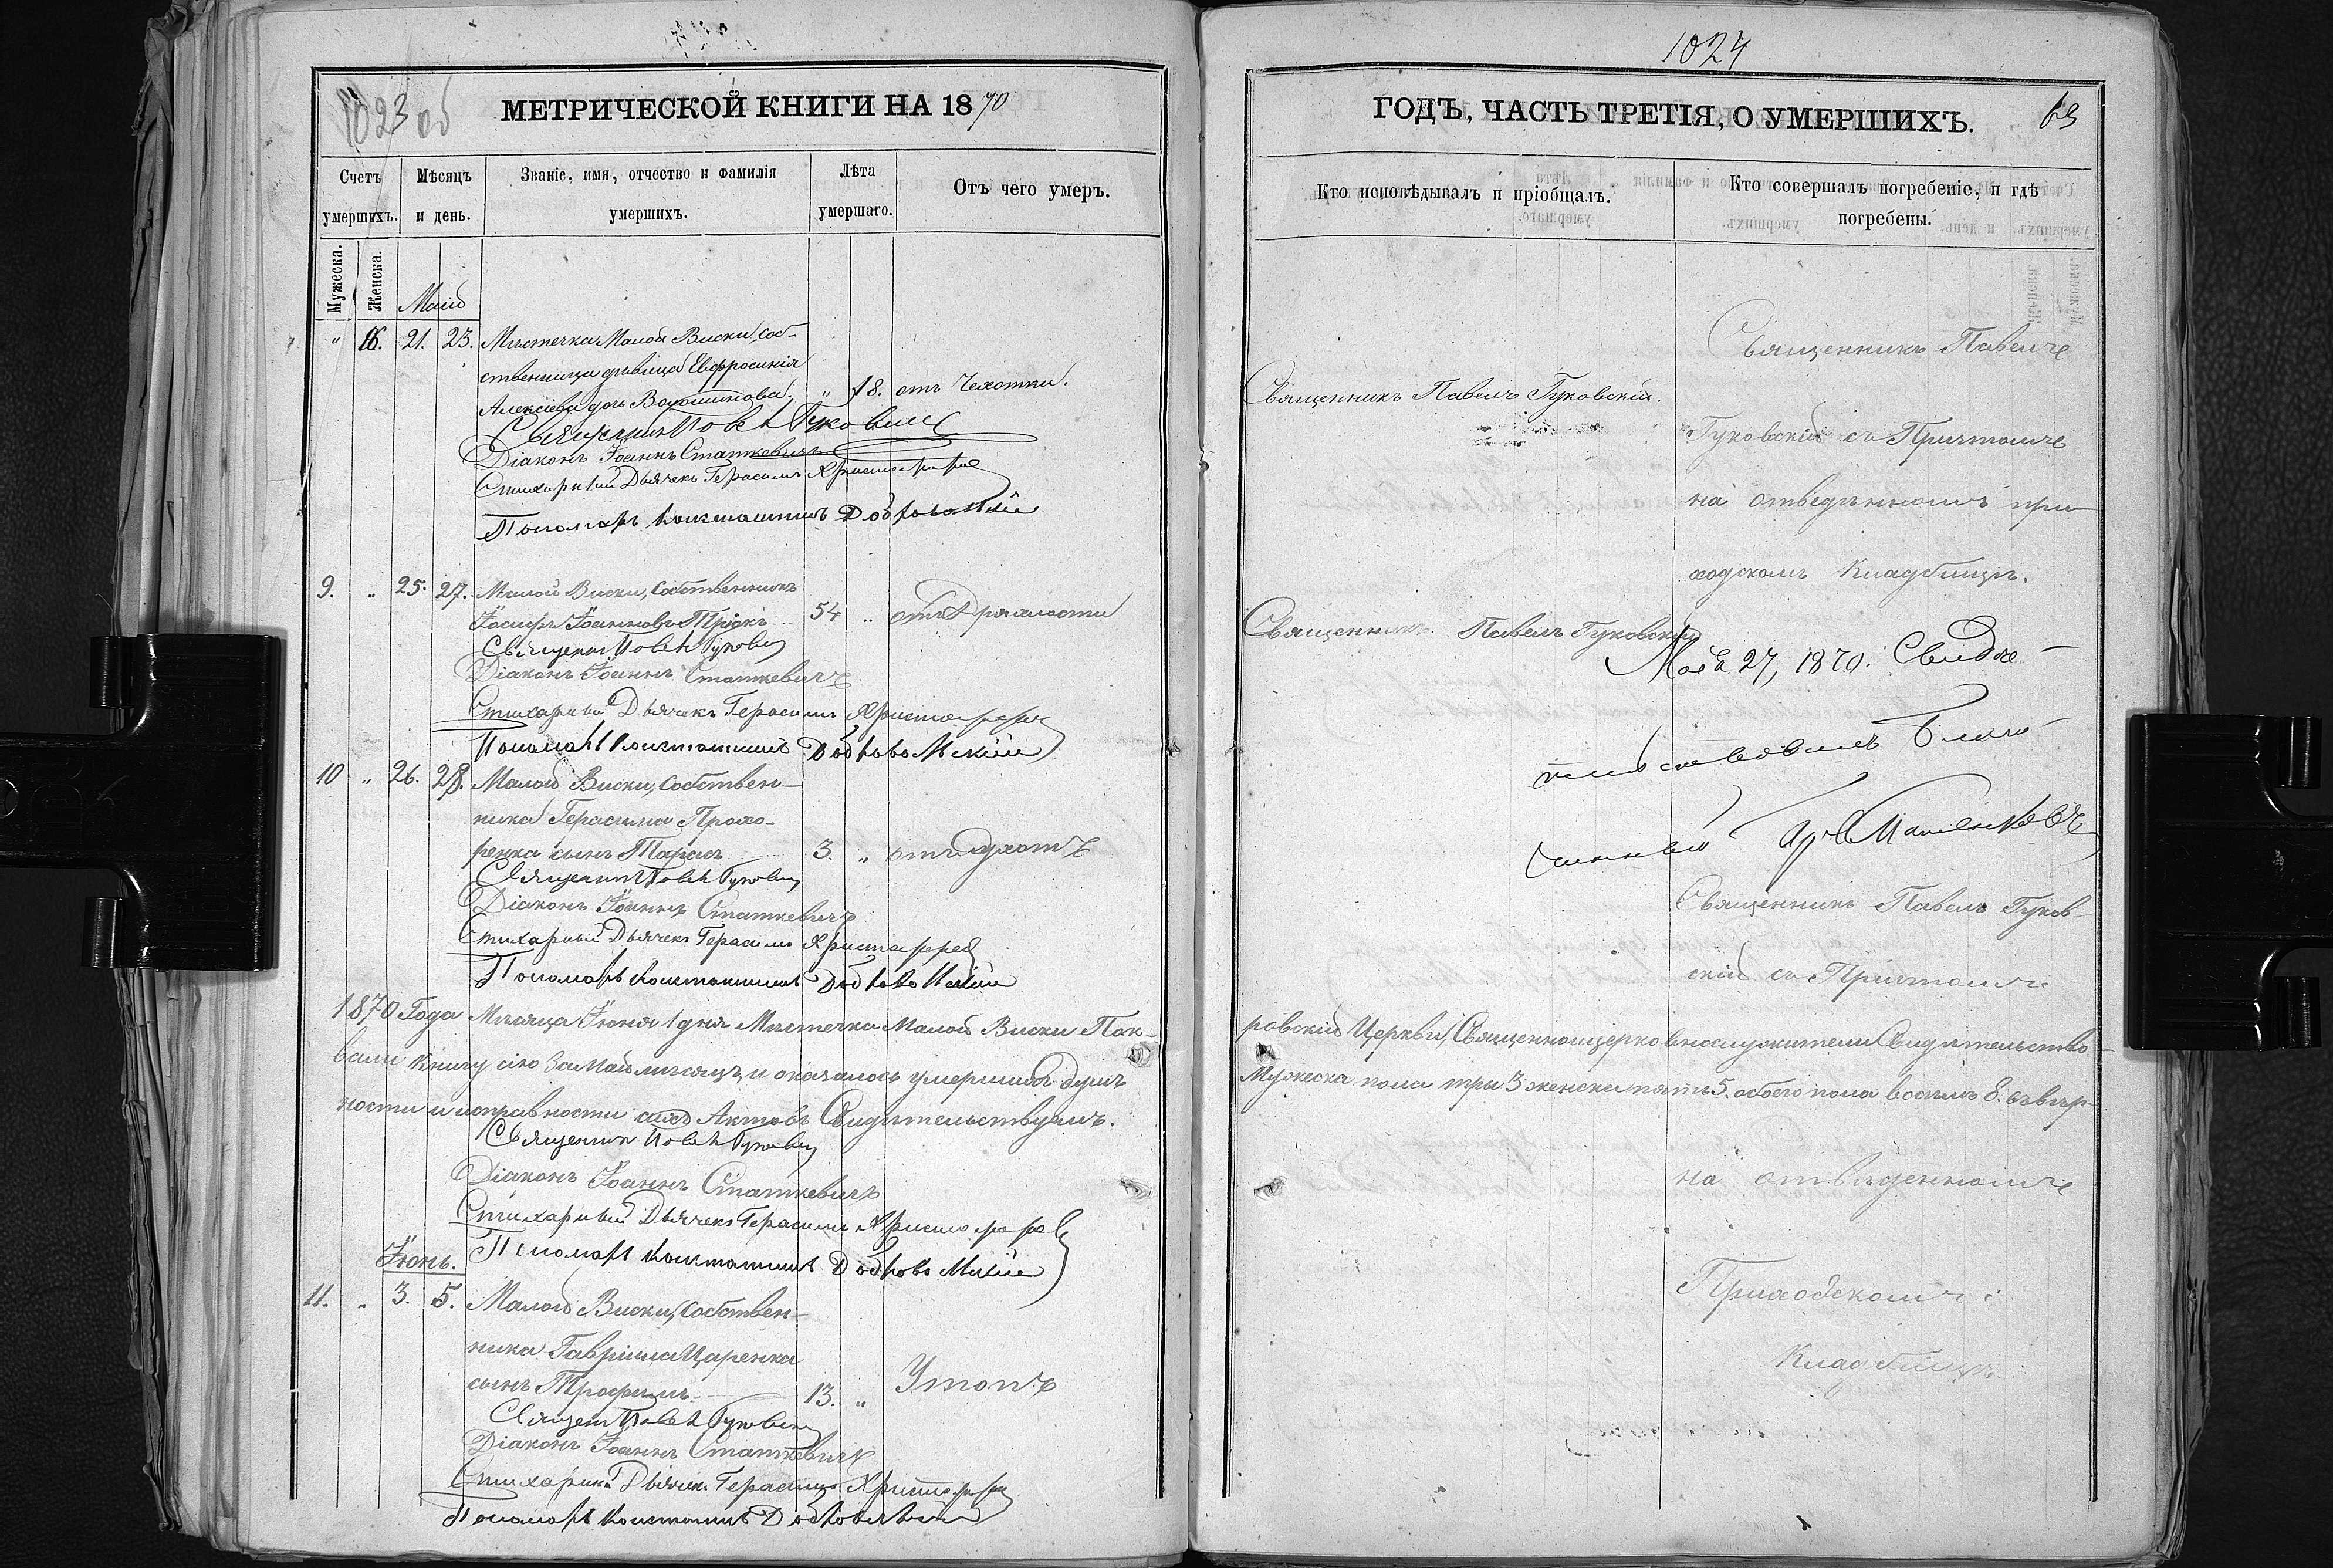 1023 об
МЕТРИЧЕСКОЙ КНИГИ НА 1870
Счетъ умершихъ.
Мѣсяцъ и день.
Званіе, имя, отчество и фамилія умершихъ.
Лѣта умершаго.
Отъ чего умеръ.
Мужеска.
Женска.
Маій
" 6. 21. 23. Мѣстечка Малой Виски, соб-
ственница дѣвица Евфросинія
Алексіева дочь Волошинова. " 18. отъ Чахотки.
Священникъ Павелъ Гуковскій
Діаконъ Іоаннъ Статкевичъ
Стихарный Дьячекъ Герасимъ Христофоровъ
Пономарь Константинъ Добровольскій
9. " 25. 27. Малой Виски, Собственникъ
Іосифъ Іоанновъ 54 " отъ Дряхлости
Священникъ Павелъ Гуковскій
Діаконъ Іоаннъ Статкевичъ
Стихарный Дьячекъ Герасимъ Христофоровъ
Пономарь Константинъ Добровольскій
10 " 26. 28. Малой Виски, Собствен-
ника Герасима Прохо-
ренка сынъ Тарасъ 3. " отъ
Священникъ Павелъ Гуковскій
Діаконъ Іоаннъ Статкевичъ
Стихарный Дьячекъ Герасимъ Христофоровъ
Пономарь Константинъ Добровольскій
1870 Года Мѣсяца Іюня 1 дня Мѣстечка Малой Виски Пок-
вали книгу сію за Май мѣсяцъ, и оказалось умершихъ душъ
ности и исправности сихъ Актовъ Свидѣтельствуемъ.
Священникъ Павелъ Гуковскій
Діаконъ Іоаннъ Статкевичъ
Стихарный Дьячекъ Герасимъ Христофоровъ
Пономарь Константинъ Добровольскій
Іюнь.
11. " 3. 5. Малой Виски, Собствен-
ника Гавріила Царенка
сынъ Трофимъ 13. " Утопъ
Священникъ Павелъ Гуковскій
Діаконъ Іоаннъ Статкевичъ
Стихарный Дьячекъ Герасимъ Христофоровъ
Пономарь Константинъ Добровольскій
1024
ГОДЪ, ЧАСТЬ ТРЕТІЯ, О УМЕРШИХЪ.
63
Кто исповѣдывалъ и пріобщалъ.
Кто совершалъ погребеніе, и гдѣ погребены.
Священникъ Павелъ
Священникъ Павелъ Гуковскій.
Гуковскій съ Причтомъ
на отведѣнномъ при
ходскомъ Кладбищѣ.
Священникъ Павелъ Гуковскій
Мая 27, 1870. Свидѣ-
тельствовалъ Благо-
чинный
Священникъ Павелъ Гуков-
скій съ Причтомъ
ровской Церкви, Священноицерковнослужители Свидѣтельство-
Мужеска пола три 3 женска пять 5. обоего пола всѣхъ 8. въ вѣр-
на отвѣденномъ
Приходскомъ
Кладбищѣ.